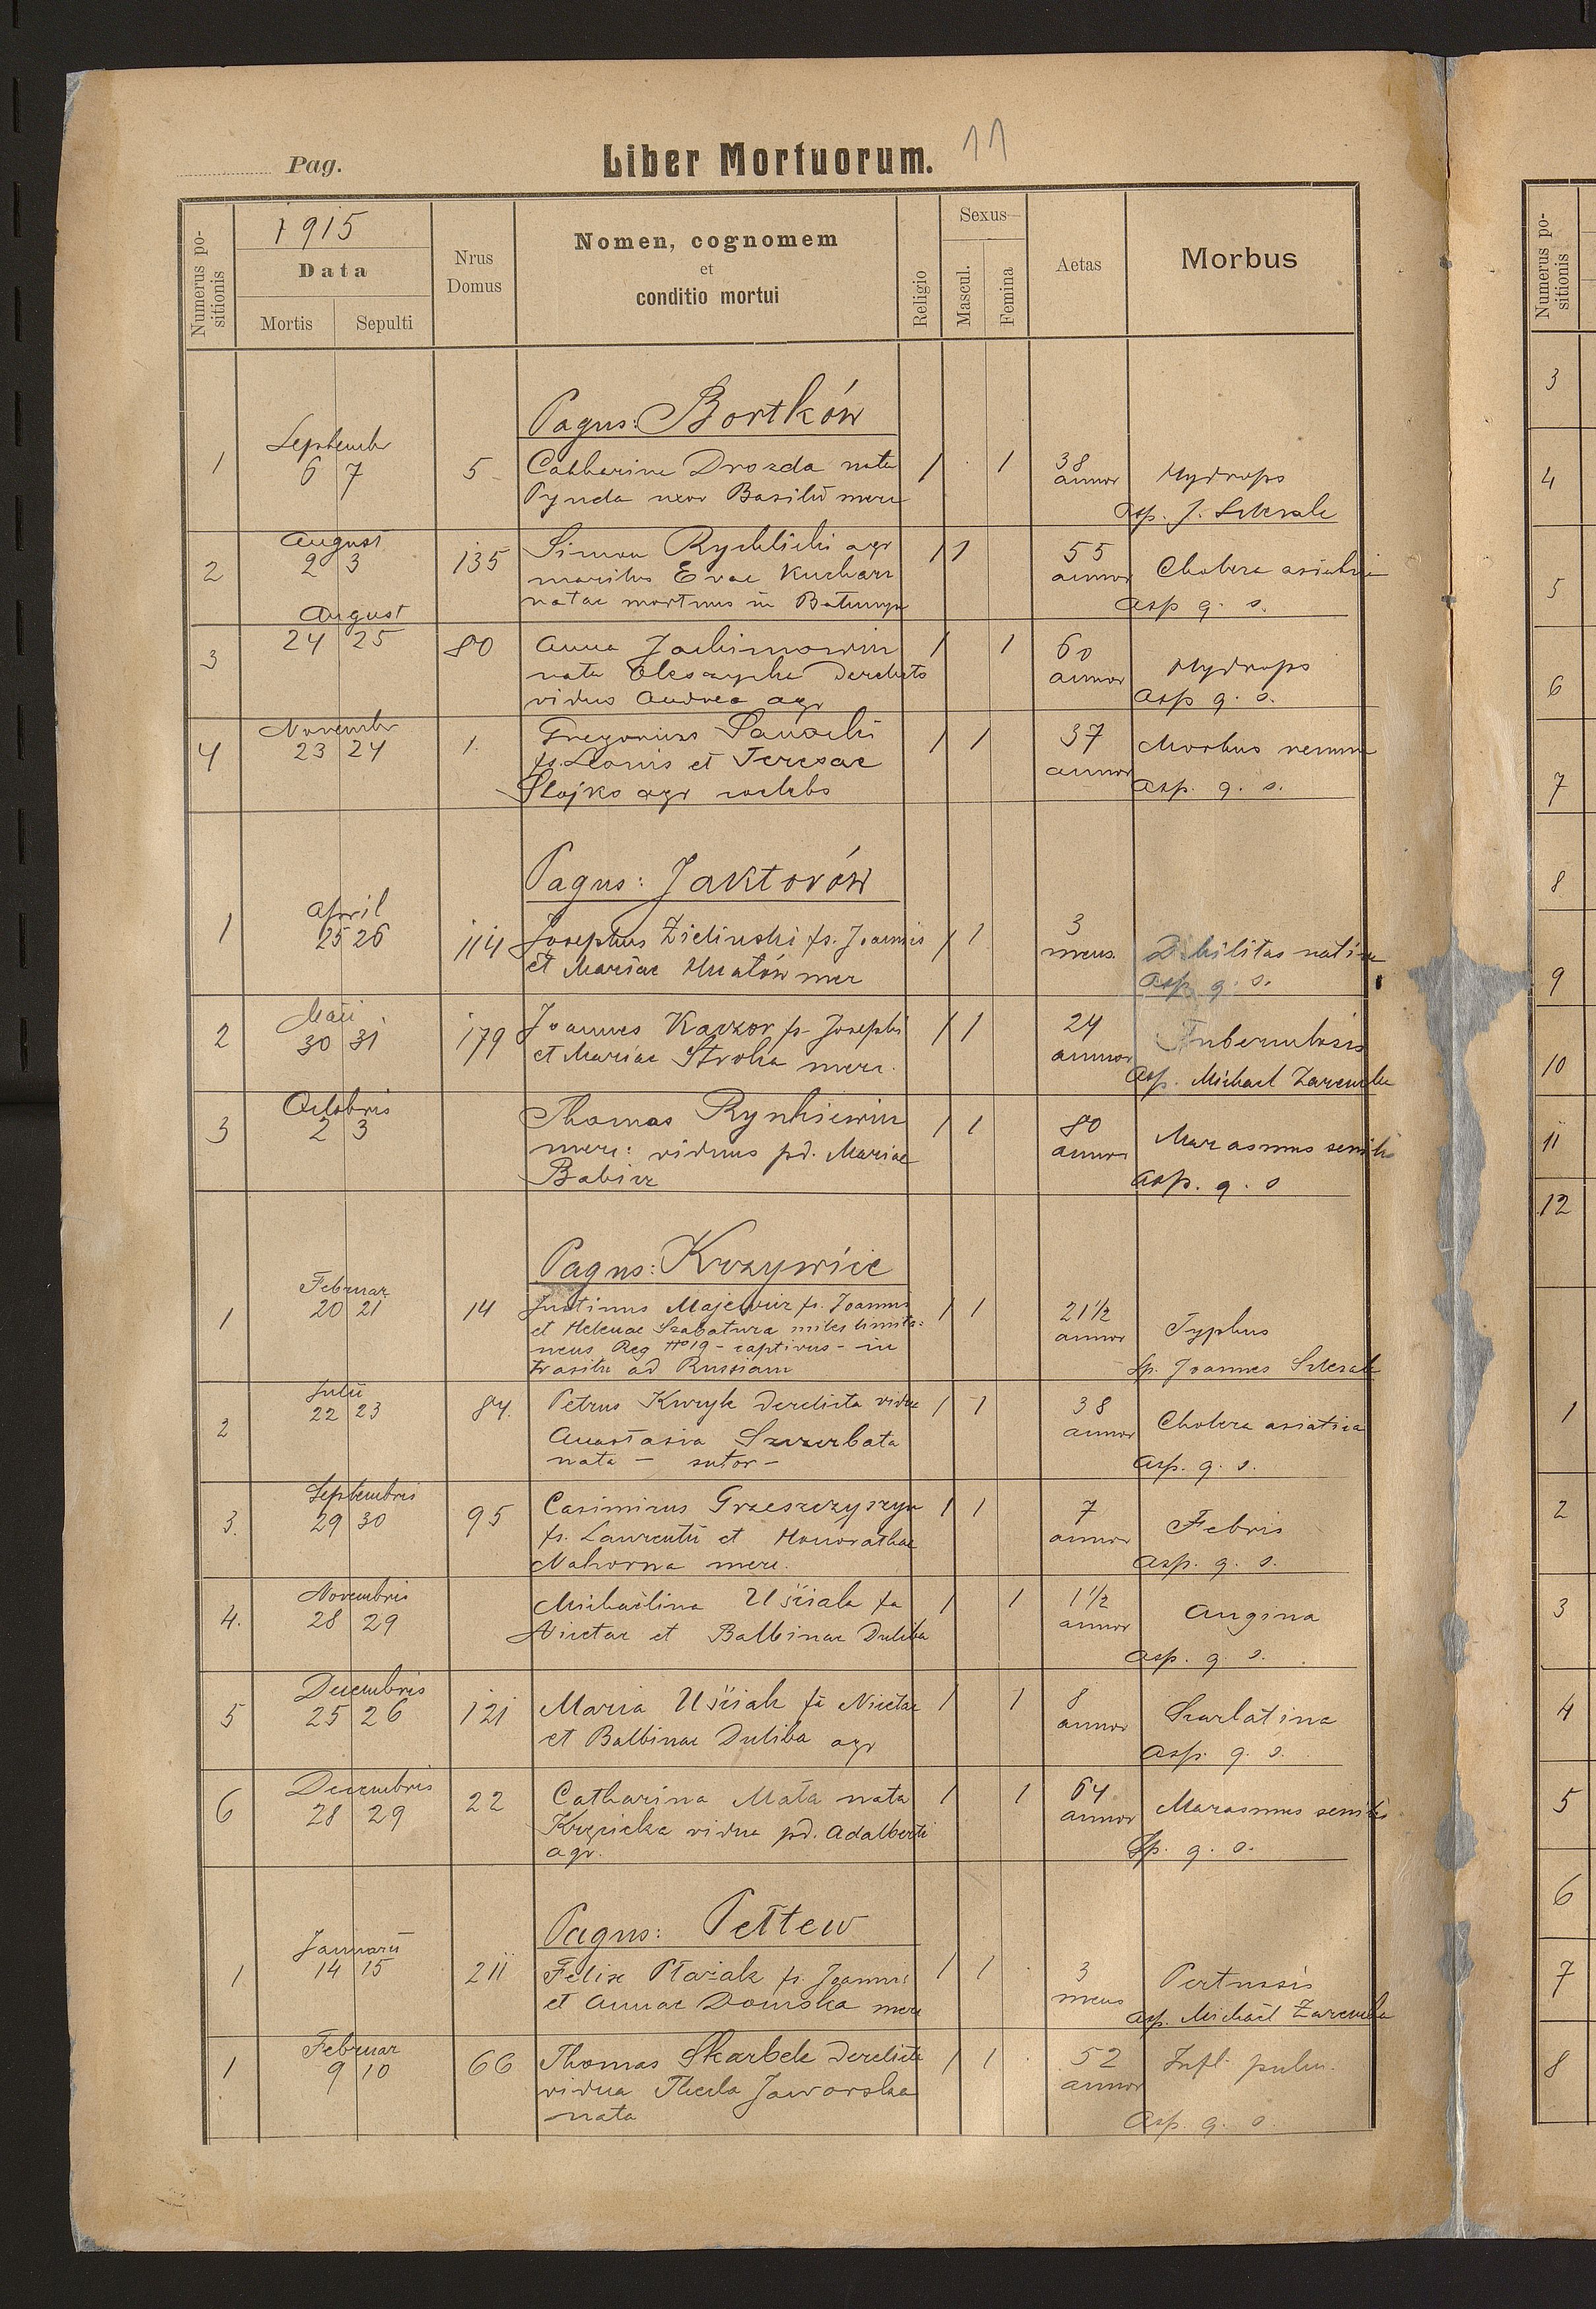 Pag. Liber Mortuorum. 11
Numerus positionis
1915
Data
Mortis Sepulti
Nrus Domus
Nomen, cognomem
et
conditio mortui
Religio
Sexus
Mascul. Femina
Aetas
Morbus
Pagus: Bortków
Septembr
1 6 7 5 Catharina Drozda nata 1 1 38 annor Hydrops
Pynda uxor Basilii merc
asp. J.
August
2 2 3 135 Simon Rychlicki agr 1 1 55 annor Cholera asiatica
maritus Evae Kucharz
natae mortuus in
asp q. s.
August
3 24 25 80 Anna Jachimowicz 1 1 60 annor Hydrops
nata derelicto
viduo Andrea agr
asp q. s.
Novembr
4 23 24 1. Gregorius Sanocki 1 1 37 annor Morbus
fs. Leonis et Teresae
Slojko agr coelebs
asp. q. s.
Pagus: Jaktorów
April
1 25 26 114 Josephus Zielinski fs. Joannis 1 1 3 mens. Debilitas nativa
et Mariae Hnatów mer
asp q. s.
Maii
2 30 31 179 Joannes Kaczor fs. Josephi 1 1 24 annor Tuberculosis
et Mariae Stroka merc.
asp. Michael Zaremba
Octobris
3 2 3 Thomas Rynkiewicz 1 1 80 annor Marasmus senilis
merc: viduus pd. Mariae
Babicz
asp. q. s
Pagus: Krzywice
Februar
1 20 21 14 Justinus Majewicz fs. Joannis 1 1 21 1/2 annor Typhus
et Helenae Szabatura miles limita=
neus Reg No 19 - captivus - in
trasitu ad Russiam
Sp. Joannes
Julii
2 22 23 84. Petrus Kuryk derelicta vidua 1 1 38 annor Cholera asiatica
Anastasia Szczerbata
nata - sutor -
asp. q. s.
Septembris
3. 29 30 95 Casimirus Grzeszczyszyn 1 1 7 annor Febris
fs. Laurentii et Honorathae
Nahorna merc.
asp. q. s.
Novembris
4. 28 29 Michaëlina Uściak fa 1 1 1 1/2 annor Angina
Nicetae et Balbinae Duliba
asp. q. s.
Decembris
5 25 26 121 Maria Uściak fa Nicetae 1 1 8 annor Scarlatina
et Balbinae Duliba agr
asp. q. s.
Decembris
6 28 29 22 Catharina Mała nata 1 1 64 annor Marasmus senilis
Krzpicka vidua pd. Adalberti
agr.
Sp. q. s.
Pagus: Pełtew
Januarii
1 14 15 211 Felix Ptażak fs. Joannis 1 1 3 mens Pertussis
et Annae Domska merc
asp. Michaël Zaremba
Februar
1 9 10 66 Thomas Skarbek derelicta 1 1 52 annor Infl. pulm.
vidua Thecla Jaworska
nata
asp. q. s.
Numerus positionis
3
4
5
6
7
8
9
10
11
12
1
2
3
4
5
6
7
8